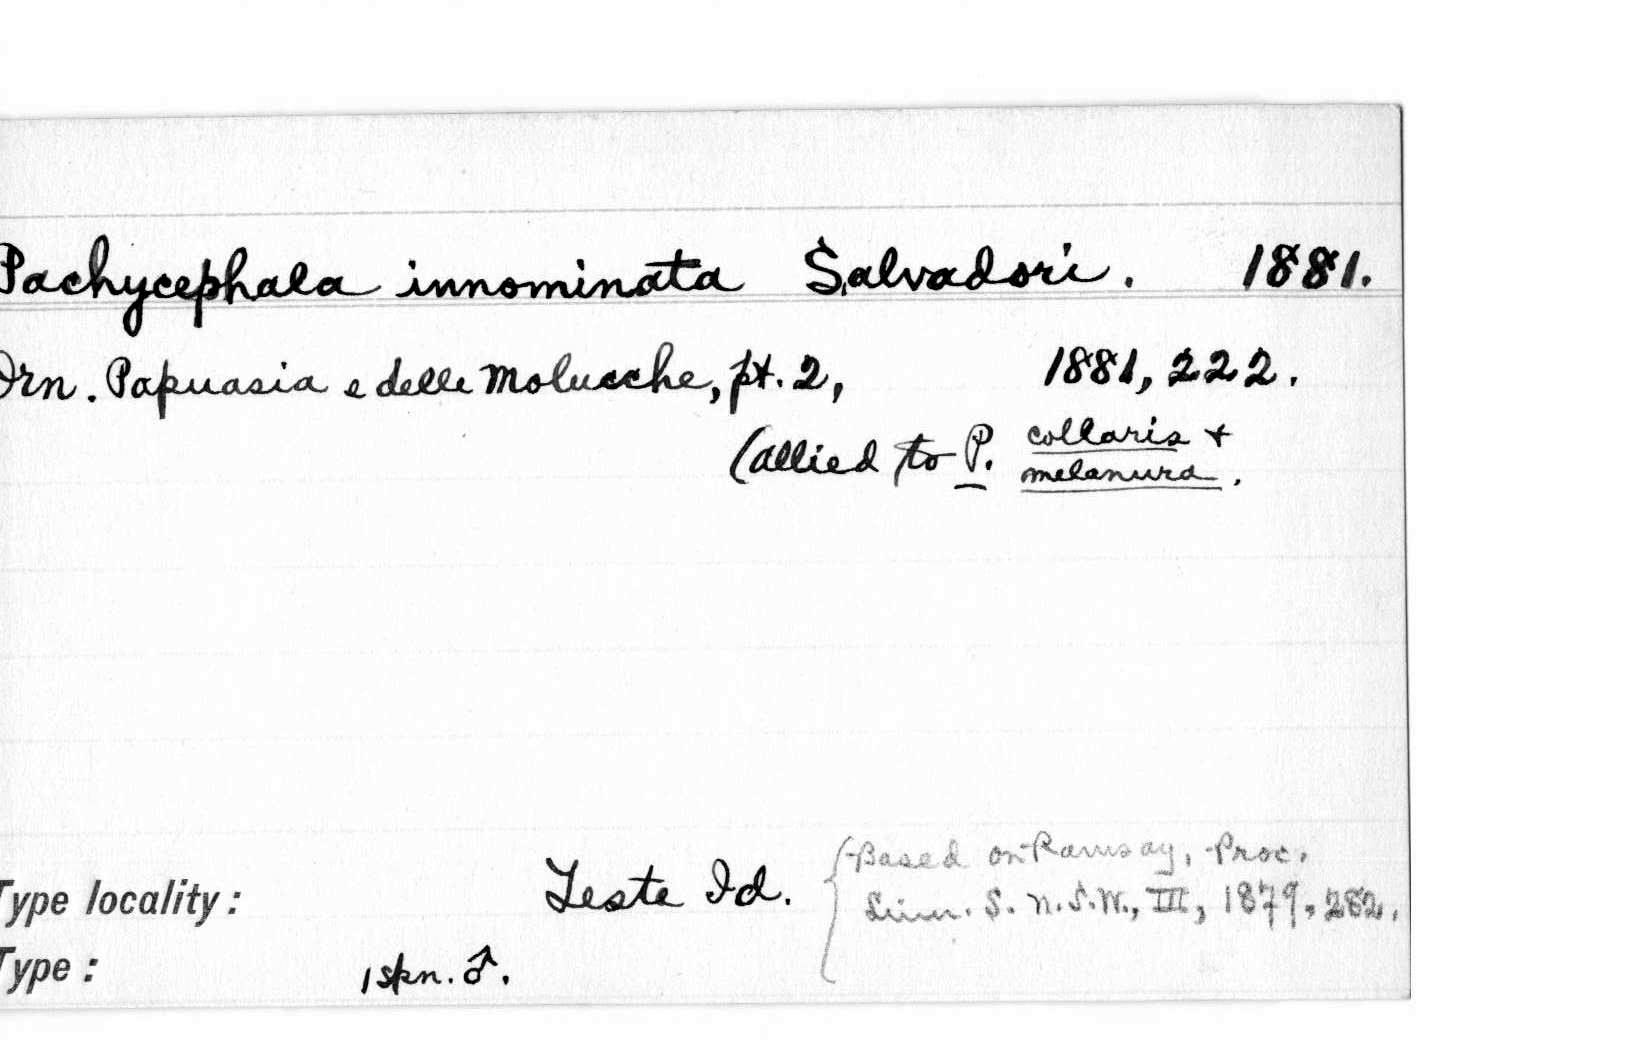 Pachycephala innominata Salvadori. 1881.
Orn. Papuasia e delle Molucche, pt. 2, 1881, 222.
(allied to P. collaris +
melanura.
Type locality: Teste Id. {Based on Ramsay, Proc.
Linn. S. N.S.W., III, 1879, 282.
Type: 1 skn. ♂.